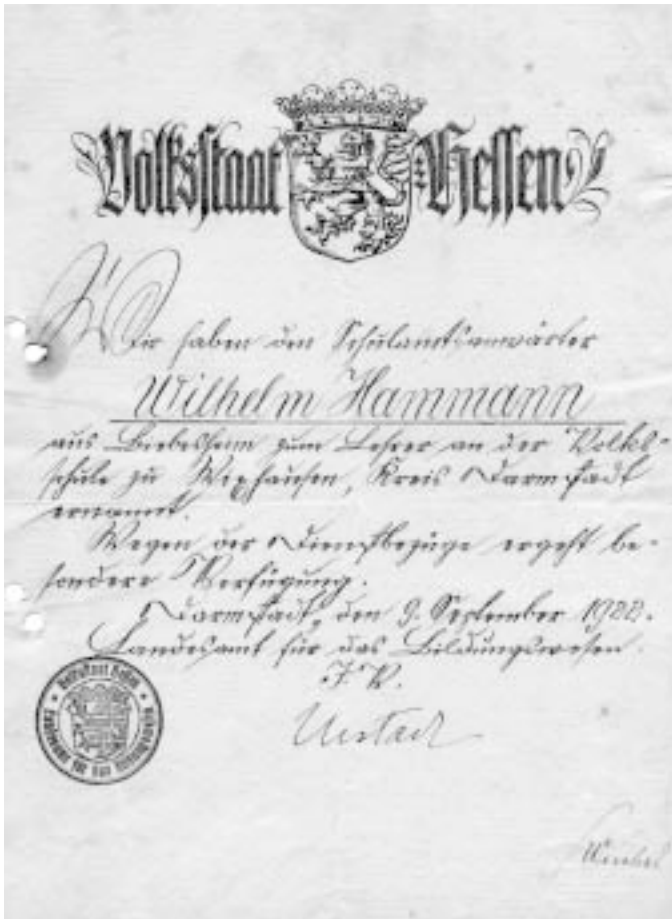 Volksstaat Hessen
Wir haben den Schulamtsanwärter
Wilhelm Hammann
aus Biebesheim zum Lehrer an der Volks-
schule zu Wixhausen, Kreis Darmstadt
ernannt.
Wegen der Dienstbezüge ergeht be-
sondere Verfügung.
Darmstadt, den 9. September 1922.
Landesamt für das Bildungswesen.
I. V.
Urstadt
Volksstaat Hessen
Landesamt für das Bildungswesen